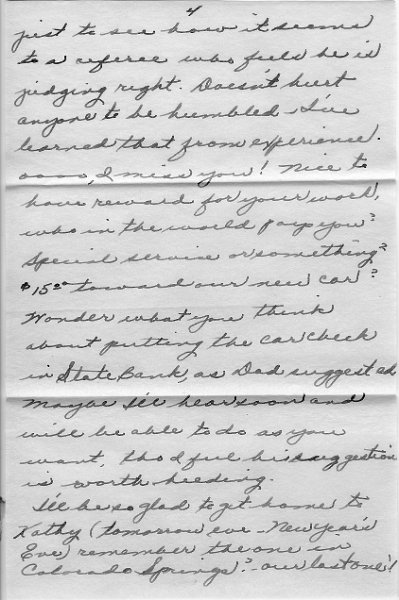 4
just to see how it seems
to a referee who feels he is
judging right. Doesn't hurt
anyone to be humbled - I've
learned that from experience.
oooo, I miss you! Nice to
have reward for your work,
who in the world pays you?
Special service or something?
$15.00 toward our new car?
Wonder what you think
about putting the car check
in State Bank, as Dad suggested
Maybe I'll hear soon and
will be able to do as you
want, tho I feel his suggestion
is worth heeding.
I'll be so glad to get home to
Kathy (tomorrow eve - New Year's
Eve) remember the one in
Colorado Springs? - our last one!